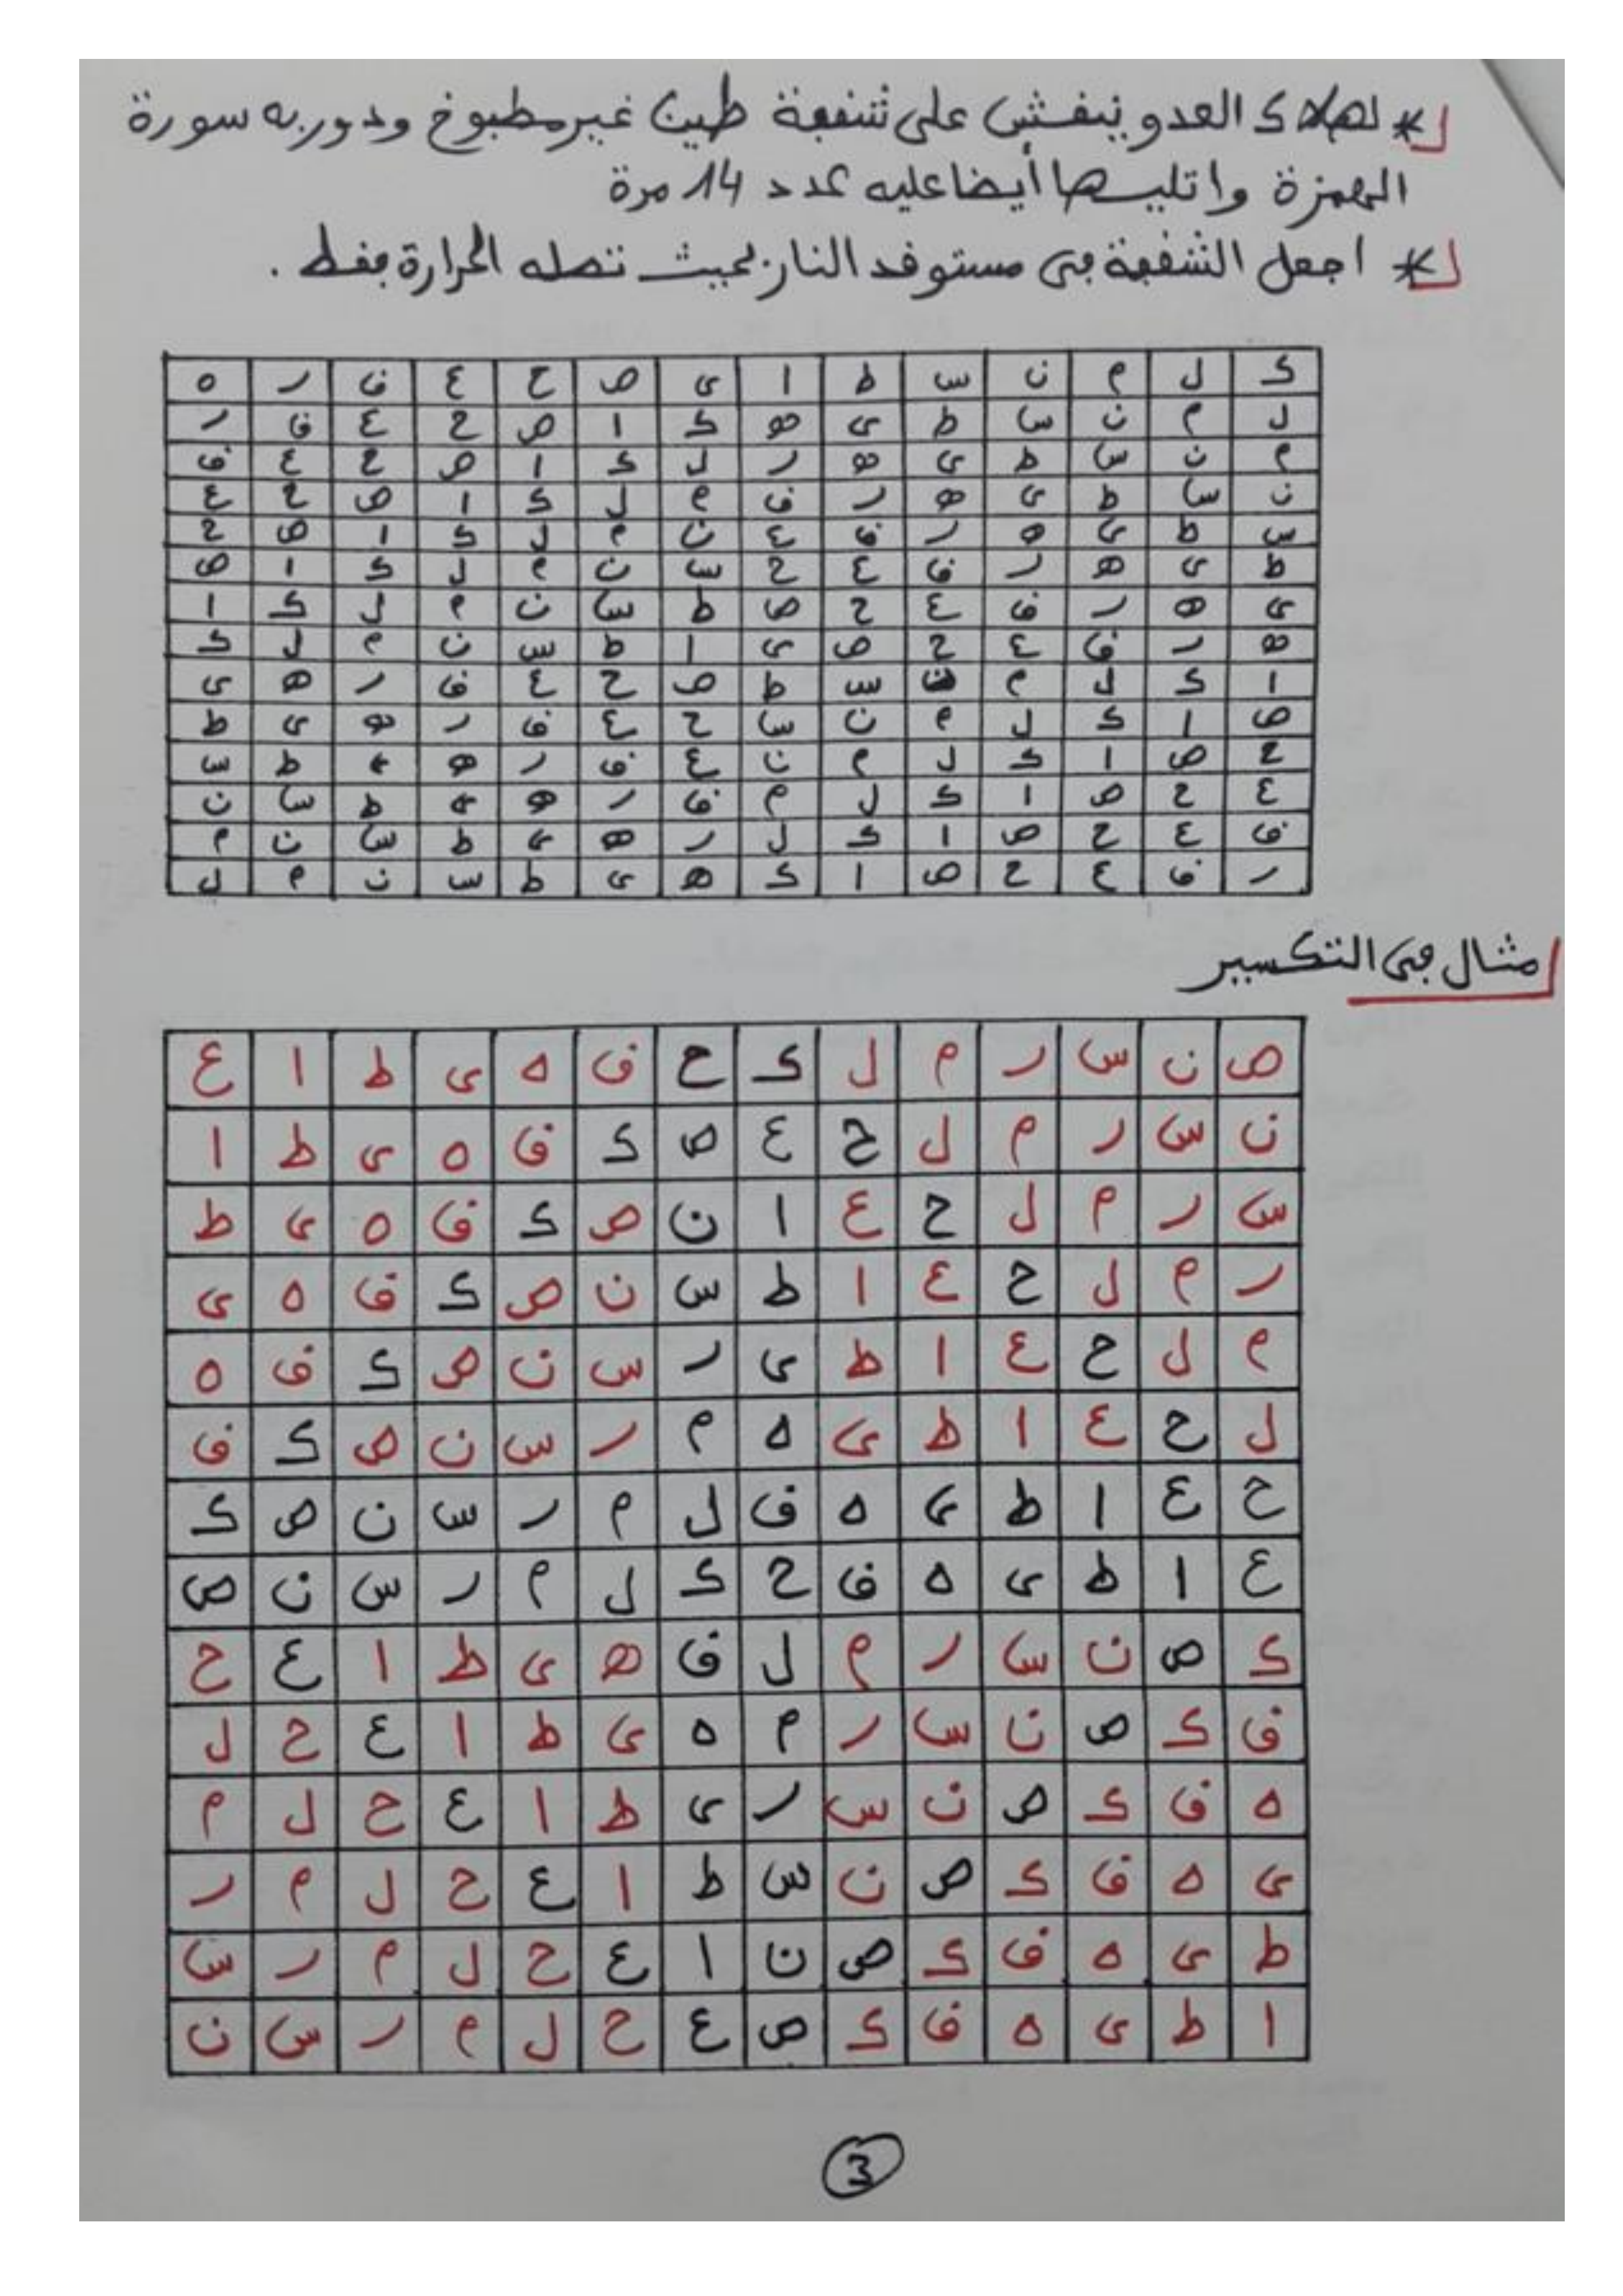 * لهلاك العدو ينقش على شقفة طين غير مطبوخ ودور به سورة
الهمزة واتليها أيضا عليه عدد 14 مرة
* اجعل الشقفة في مستوقد النار بحيث تصله الحرارة فقط .
ك ل م ن س ط ا ى ص ح ع ق ر ه
ل م ن س ط ى ه ك ا ص ح ع ق ر
م ن س ط ى ه ر ل ك ا ص ح ع ق
ن س ط ى ه ر ق م ل ك ا ص ح ع
س ط ى ه ر ق ع ن م ل ك ا ص ح
ط ى ه ر ق ع ح س ن م ل ك ا ص
ى ه ر ق ع ح ص ط س ن م ل ك ا
ه ر ق ع ح ص ى ا ط س ن م ل ك
ا ك ل م ن س ط ص ح ع ق ر ه ى
ص ا ك ل م ن س ح ع ق ر ه ى ط
ح ص ا ك ل م ن ع ق ر ه ى ط س
ع ح ص ا ك ل م ق ر ه ى ط س ن
ق ع ح ص ا ك ل ر ه ى ط س ن م
ر ق ع ح ص ا ك ه ى ط س ن م ل
مثال في التكسير
ص ن س ر م ل ك ح ق ه ى ط ا ع
ن س ر م ل ح ع ص ك ق ه ى ط ا
س ر م ل ح ع ا ن ص ك ق ه ى ط
ر م ل ح ع ا ط س ن ص ك ق ه ى
م ل ح ع ا ط ى ر س ن ص ك ق ه
ل ح ع ا ط ى ه م ر س ن ص ك ق
ح ع ا ط ى ه ق ل م ر س ن ص ك
ع ا ط ى ه ق ح ك ل م ر س ن ص
ك ص ن س ر م ل ق ه ى ط ا ع ح
ق ك ص ن س ر م ه ى ط ا ع ح ل
ه ق ك ص ن س ر ى ط ا ع ح ل م
ى ه ق ك ص ن س ط ا ع ح ل م ر
ط ى ه ق ك ص ن ا ع ح ل م ر س
ا ط ى ه ق ك ص ع ح ل م ر س ن
3